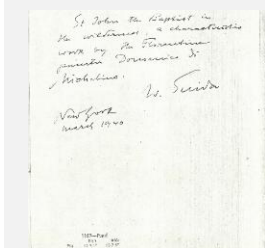 St John the Baptist in
the wilderness a characteristic
work by the Florentine
painter Domenico di
Michelino.
New York
March 1940